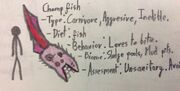 Chomp fish
-Type: Carnivore, Aggressive, Inedible.
-Diet: fish
-Behavior: Loves to bite.
-Biome: Sludge pools, Mud pits.
-Assessment: Unsanitary. Avoid